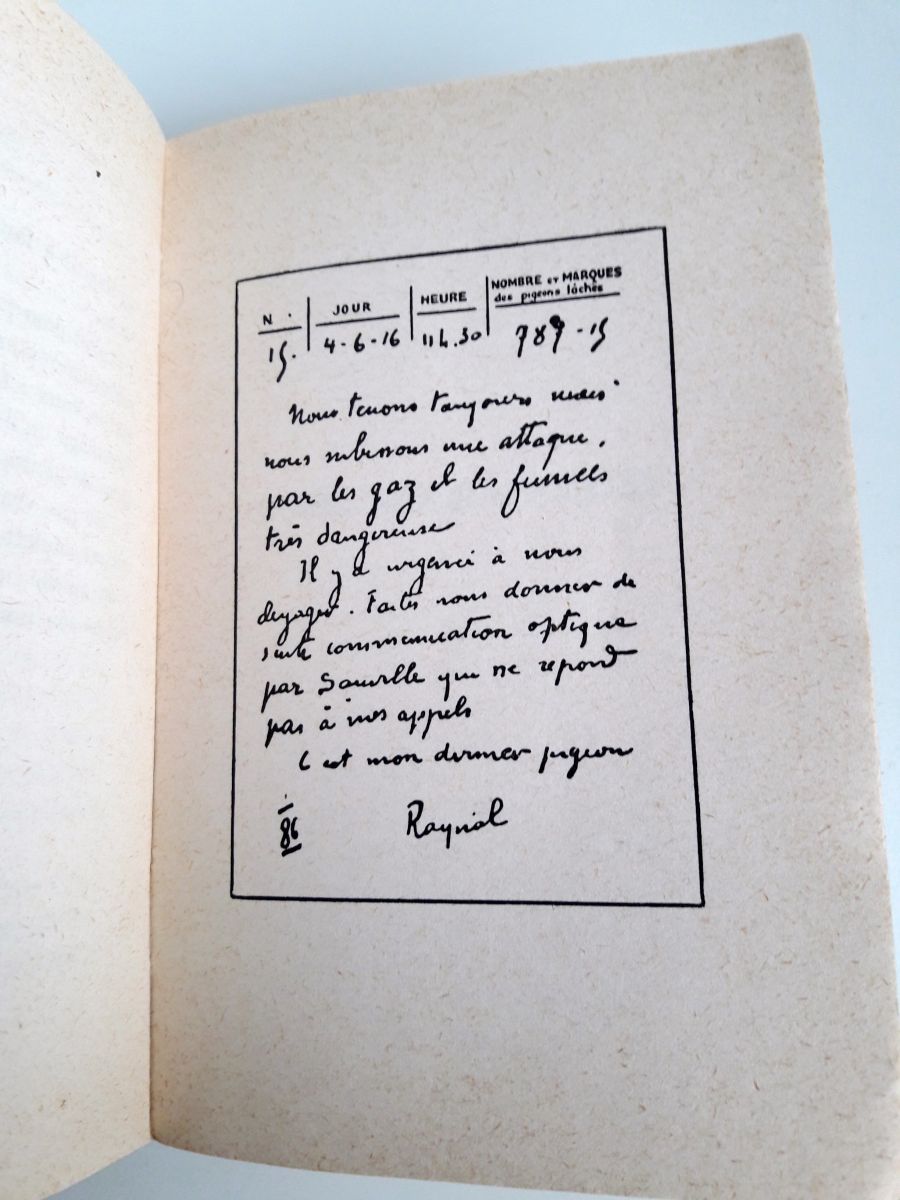 N. JOUR HEURE NOMBRE ET MARQUES
des pigeons lâchés
15. 4-6-16 11h.30 787-15
Nous tenons toujours mais
nous subissons une attaque,
par les gaz et les fumées
très dangereuse
Il y a urgence à nous
dégager. Faites nous donner de
suite communication optique
par Souville qui ne répond
pas à mes appels
C'est mon dernier pigeon
Raynal